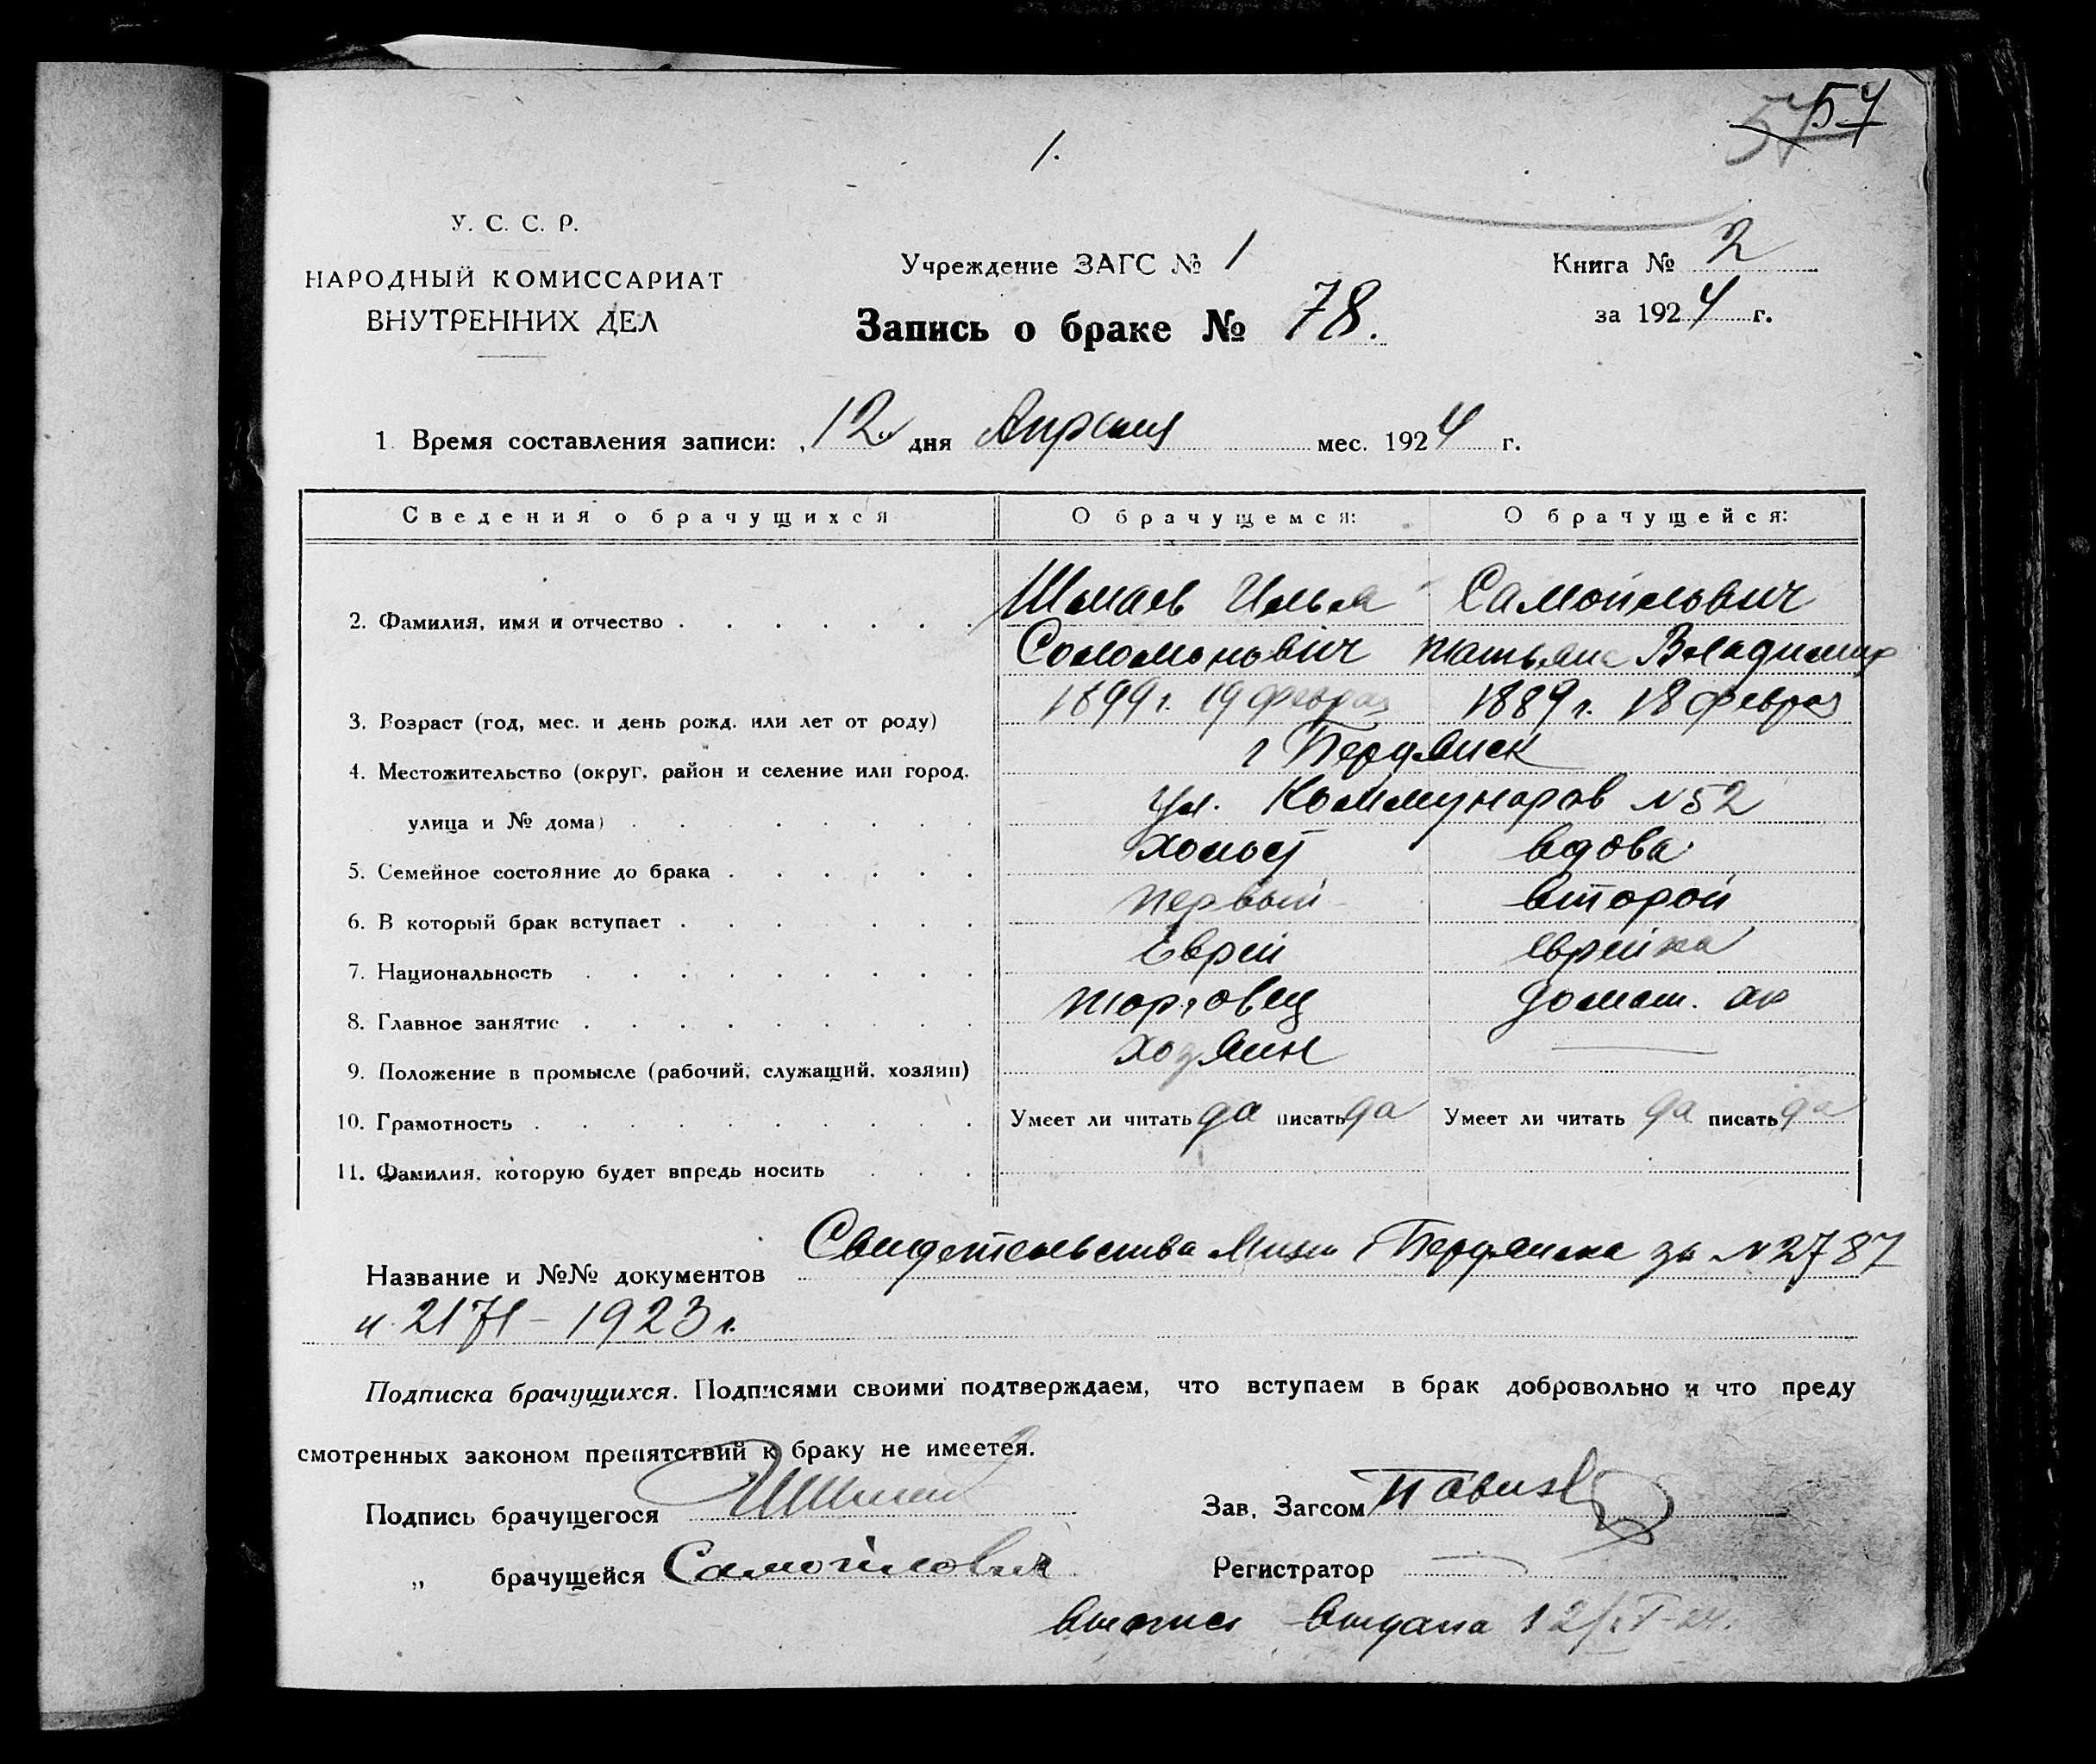 54
57
1.
У. С. С. Р.
НАРОДНЫЙ КОМИССАРИАТ
ВНУТРЕННИХ ДЕЛ
Учреждение ЗАГС № 1
Запись о браке № 78.
Книга № 2
за 1924 г.
1. Время составления записи: 12 дня Апреля мес. 1924 г.
Сведения о брачущихся О брачущемся: О брачущейся:
2. Фамилия, имя и отчество Шмаев Илья Самойлович
Соломонович Татьяна Владимир
3. Возраст (год, мес. и день рожд. или лет от роду) 1899 г. 19 февраля 1889 г. 18 февраля
4. Местожительство (округ, район и селение или город, г Бердянск
улица и № дома) ул. Коммунаров № 52
5. Семейное состояние до брака холост вдова
6. В который брак вступает первый второй
7. Национальность Еврей еврейка
8. Главное занятие торговец домаш. хо
9. Положение в промысле (рабочий, служащий, хозяин) хозяин —
10. Грамотность Умеет ли читать да писать да Умеет ли читать да писать да
11. Фамилия, которую будет впредь носить
Название и №№ документов Свидетельства Бердянска за № 2787
и 2171 – 1923 г.
Подписка брачущихся. Подписями своими подтверждаем, что вступаем в брак добровольно и что преду
смотренных законом препятствий к браку не имеется.
Подпись брачущегося
Зав. Загсом
„ брачущейся Самойлович
Регистратор —
выпись выдана 12/IV-24.